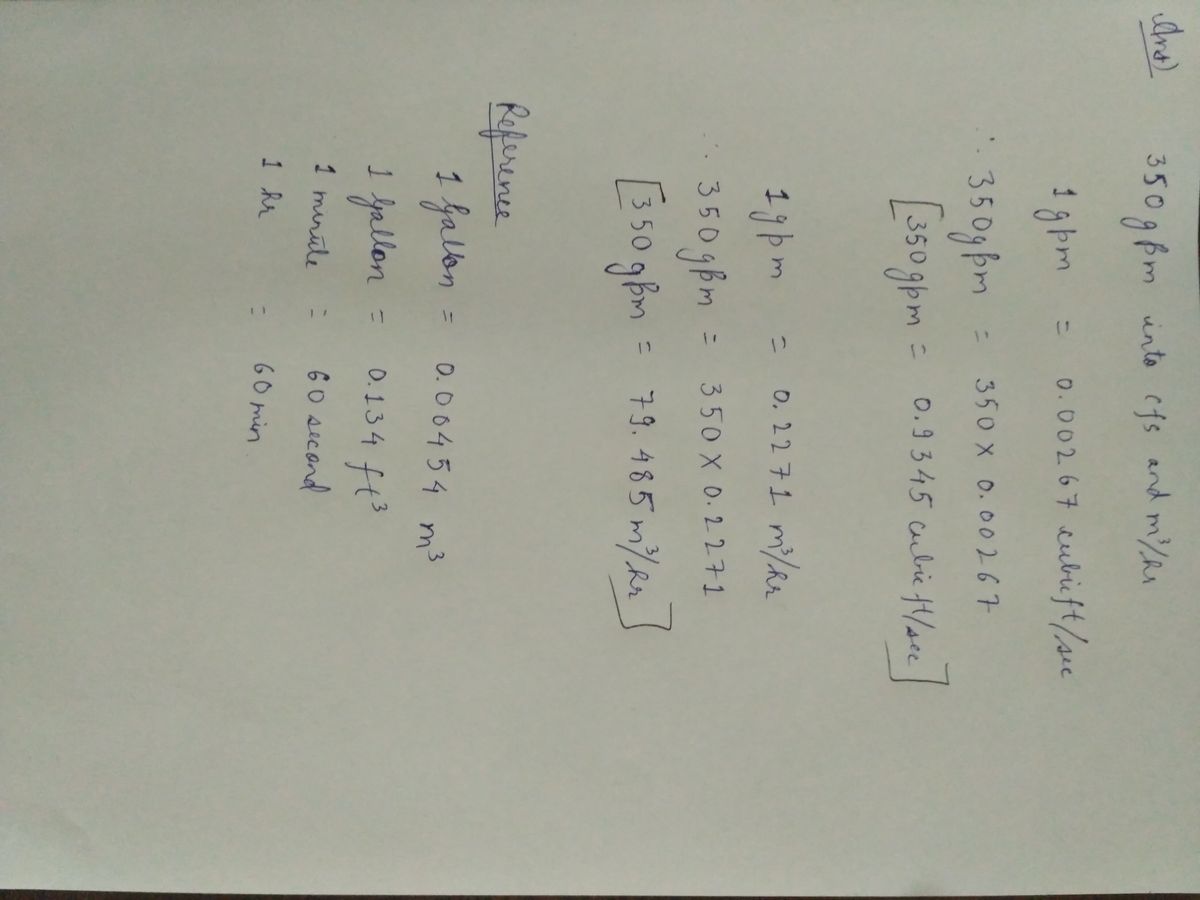 Ans) 350gpm into cfs and m³/hr
1gpm = 0.00267 cubic ft/sec
∴ 350gpm = 350 x 0.00267
[350gpm = 0.9345 cubic ft/sec]
1gpm = 0.2271 m³/hr
∴ 350gpm = 350 X 0.2271
[350 gpm = 79.485 m³/hr]
Reference
1 Gallon = 0.00454 m³
1 Gallon = 0.134 ft³
1 minute = 60 second
1 hr = 60 min